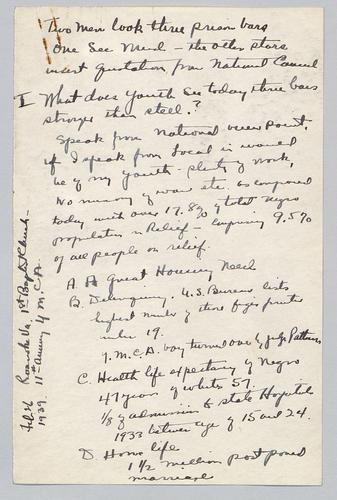 Two men look thru prison bars
One sees mud – the other stars
insert quotation from National Council
I What does youth see today thru bars
stronger than steel?
Speak from National view point,
if I speak from local it would
be of my youth – plenty of work,
No memory of war etc. as compared
today with over 17.8% of total Negro
population on Relief – comprising 9.5%
of all people on relief.
A. A Great Housing Need
B. Delinquency. U.S. Bureau lists
highest number of these figs
under 19.
Y.M.C.A. boy turned over by Judge
C. Health life expectancy of Negro
47 years of whites 59.
1/8 of admissions to state Hospitals
1933 between age of 15 and 24.
D Home life
1 1/2 million postponed
marriage
Feb. Roanoke Va. 1st Baptist Church –
1939. 11th anniv Y.M.C.A.